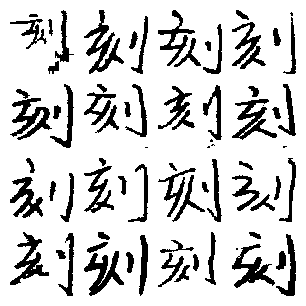 刻刻刻刻
刻刻刻刻
刻刻刻刻
刻刻刻刻